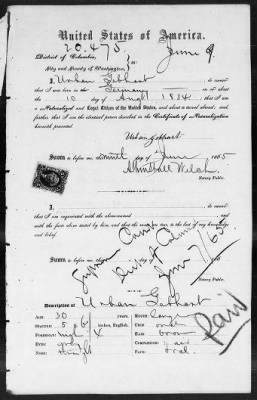 United States of America.
20.475
June 9.
District of Columbia,
City and County of Washington,
I, Urban Gebhart do swear
that I was born in Germany on or about
the 10 day of Augt 1834; that I am
a Naturalized and Loyal Citizen of the United States, and about to travel abroad; and
further, that I am the identical person described in the Certificate of Naturalization
herewith presented.
Urban Gebhart
Sworn before me, this ninth day of June 1865
Welsh
Notary Public.
I, do swear
that I am acquainted with the above-named and
with the facts above stated by him, and that the same are true, to the best of my knowledge
and belief.
Sworn before me
June 9/65
Notary Public.
Description of Urban Gebhart
Age: 30 years
Mouth: large
Stature: 5 feet 6½ inches, English.
Chin: oval
Forehead: high
Hair: brown
Eyes: grey
Complexion: fair
Nose: straight
Face: oval
Paid